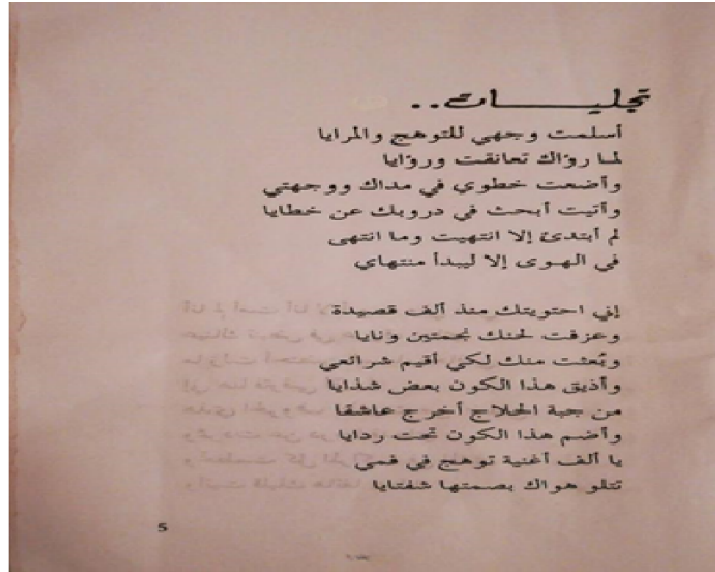 تجليــــات..
أسلمت وجهي للتوهج والمرايا
لما رؤاك تعانقت ورؤايا
وأضعت خطوي في مداك ووجهتي
وأتيت أبحث في دروبك عن خطايا
لم أبتدئ إلا انتهيت وما انتهى
في الهوى إلا ليبدأ منتهاي
إني احتويتك منذ ألف قصيدة
وعزفت لحنك نجمتين ونايا
وبُعثت منك لكي أقيم شرائعي
وأذيق هذا الكون بعض شذايا
من جبة الحلاج أخرج عاشقا
وأضم هذا الكون تحت ردايا
يا ألف أغنية توهج في فمي
تتلو هواك بصمتها شفتايا
5